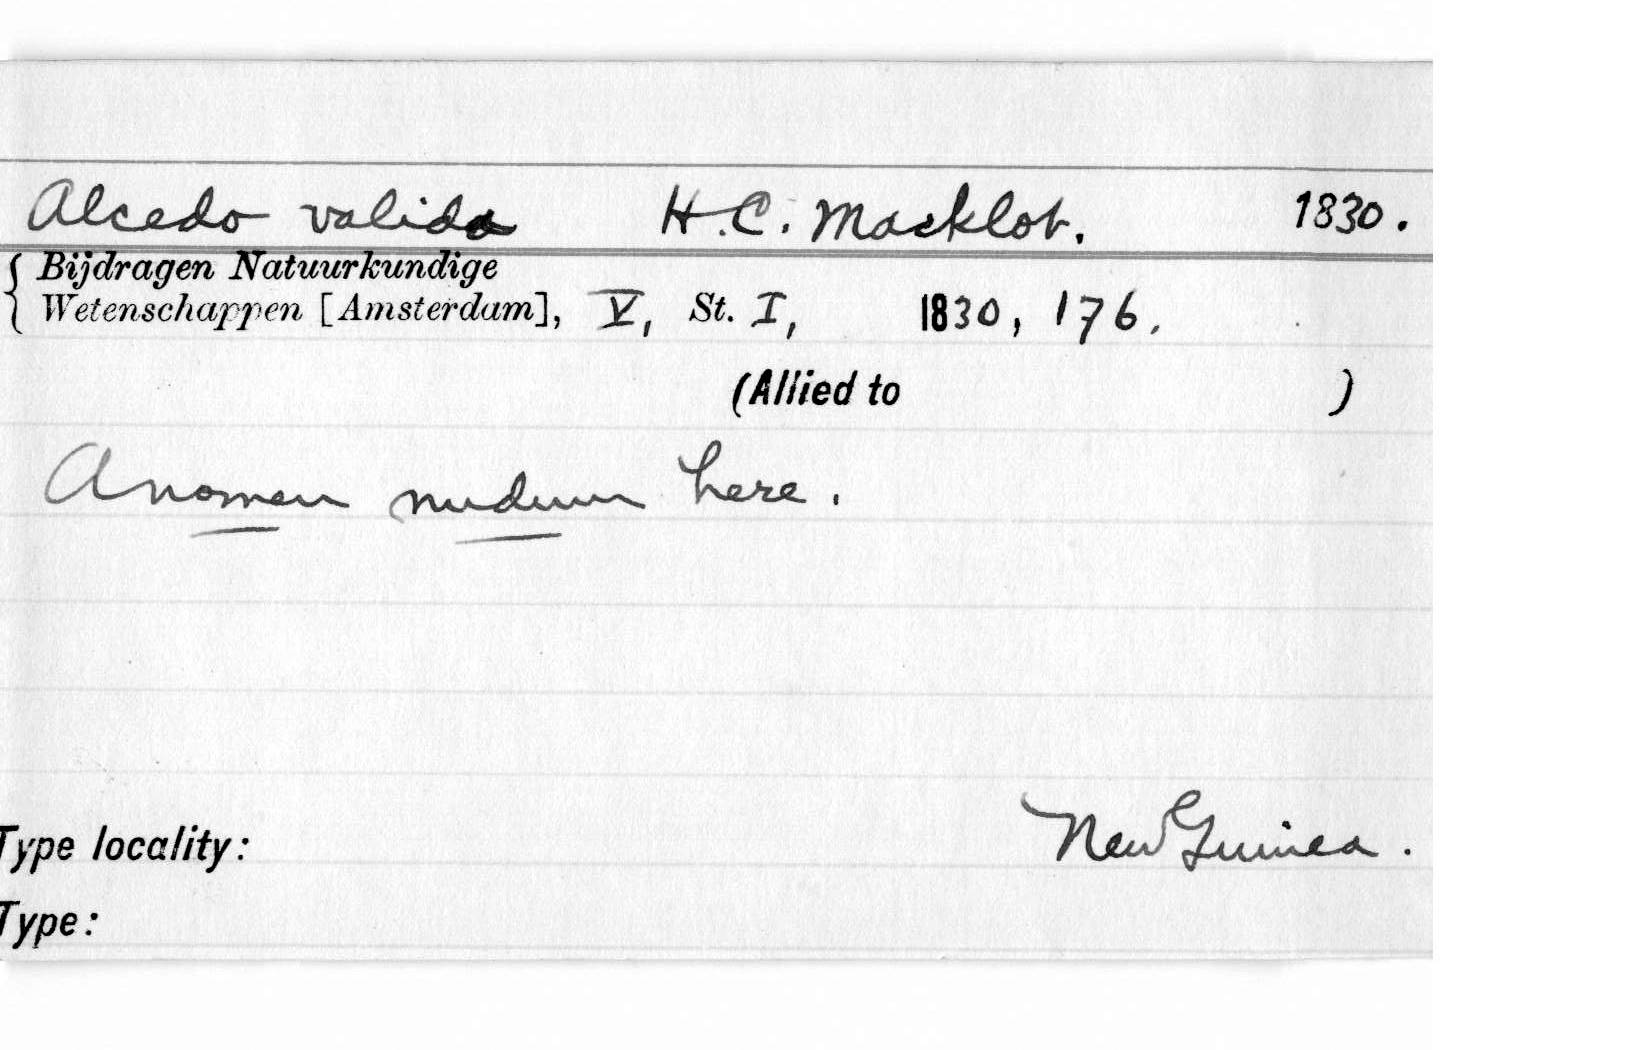 Alcedo valida H.C. Macklot. 1830.
{ Bijdragen Natuurkundige
Wetenschappen [Amsterdam], V, St. I, 1830, 176.
(Allied to )
A nomen nudum here.
Type locality: New Guinea.
Type: